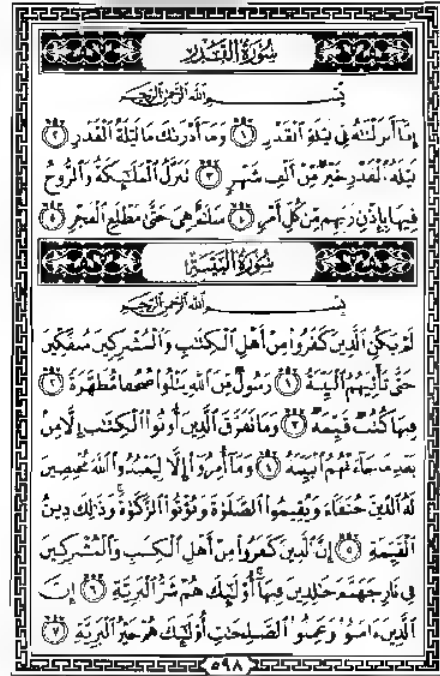 سُورَةُ القَدْرِ
بِسْمِ اللَّهِ الرَّحْمَنِ الرَّحِيمِ
إِنَّا أَنزَلْنَاهُ فِي لَيْلَةِ الْقَدْرِ ١ وَمَا أَدْرَىٰكَ مَا لَيْلَةُ الْقَدْرِ ٢
لَيْلَةُ الْقَدْرِ خَيْرٌ مِّنْ أَلْفِ شَهْرٍ ٣ تَنَزَّلُ الْمَلَٰٓئِكَةُ وَالرُّوحُ
فِيهَا بِإِذْنِ رَبِّهِم مِّن كُلِّ أَمْرٍ ٤ سَلَٰمٌ هِيَ حَتَّىٰ مَطْلَعِ الْفَجْرِ ٥
سُورَةُ البَيِّنَةِ
بِسْمِ اللَّهِ الرَّحْمَنِ الرَّحِيمِ
لَمْ يَكُنِ الَّذِينَ كَفَرُوا مِنْ أَهْلِ الْكِتَٰبِ وَالْمُشْرِكِينَ مُنفَكِّينَ
حَتَّىٰ تَأْتِيَهُمُ الْبَيِّنَةُ ١ رَسُولٌ مِّنَ اللَّهِ يَتْلُوا صُحُفًا مُّطَهَّرَةً ٢
فِيهَا كُتُبٌ قَيِّمَةٌ ٣ وَمَا تَفَرَّقَ الَّذِينَ أُوتُوا الْكِتَٰبَ إِلَّا مِنۢ
بَعْدِ مَا جَآءَتْهُمُ الْبَيِّنَةُ ٤ وَمَآ أُمِرُوٓا إِلَّا لِيَعْبُدُوا اللَّهَ مُخْلِصِينَ
لَهُ الدِّينَ حُنَفَآءَ وَيُقِيمُوا الصَّلَوٰةَ وَيُؤْتُوا الزَّكَوٰةَ ۚ وَذَٰلِكَ دِينُ
الْقَيِّمَةِ ٥ إِنَّ الَّذِينَ كَفَرُوا مِنْ أَهْلِ الْكِتَٰبِ وَالْمُشْرِكِينَ
فِي نَارِ جَهَنَّمَ خَٰلِدِينَ فِيهَآ ۚ أُولَٰٓئِكَ هُمْ شَرُّ الْبَرِيَّةِ ٦ إِنَّ
الَّذِينَ ءَامَنُوا وَعَمِلُوا الصَّٰلِحَٰتِ أُولَٰٓئِكَ هُمْ خَيْرُ الْبَرِيَّةِ ٧
٥٩٨